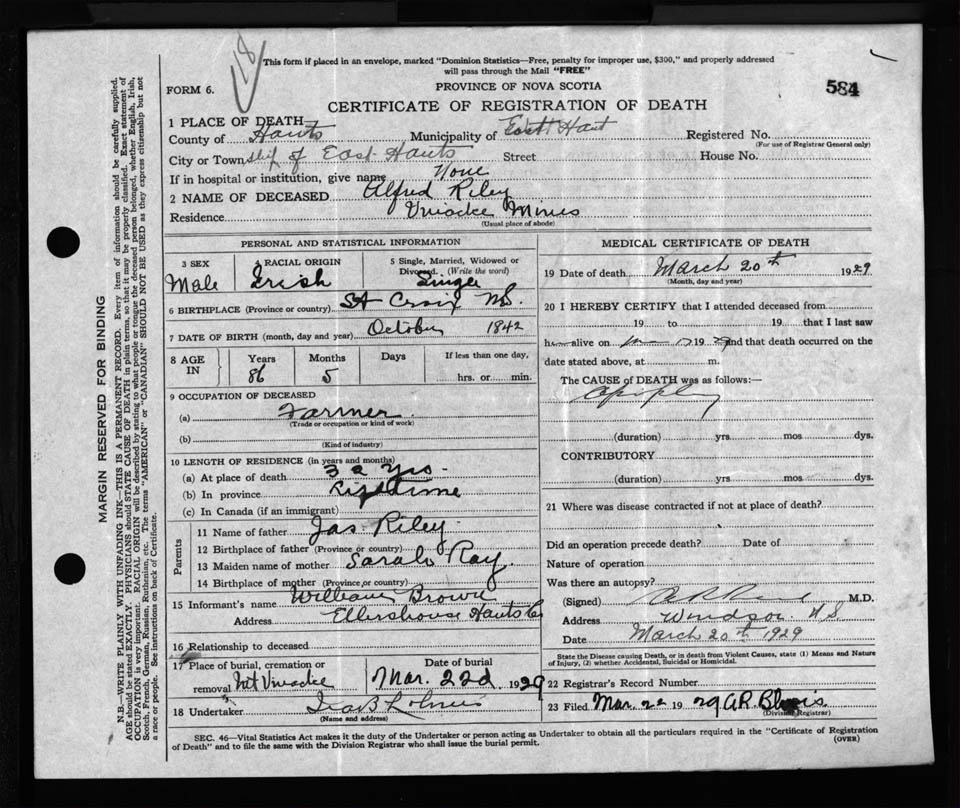 18
This form if placed in an envelope, marked "Dominion Statistics—Free, penalty for improper use, $300," and properly addressed
will pass through the Mail "FREE"
FORM 6.
PROVINCE OF NOVA SCOTIA
584
CERTIFICATE OF REGISTRATION OF DEATH
1 PLACE OF DEATH
County of Hants Municipality of East Hant Registered No.
(For use of Registrar General only)
City or Town of East Hants Street House No.
If in hospital or institution, give name None
2 NAME OF DECEASED Alfred Riley
Residence Uniacke Mines
(Usual place of abode)
PERSONAL AND STATISTICAL INFORMATION
3 SEX 4 RACIAL ORIGIN 5 Single, Married, Widowed or
Divorced. (Write the word)
Male Irish Single
6 BIRTHPLACE (Province or country) St Croix N.S.
7 DATE OF BIRTH (month, day and year) October 1842
8 AGE IN Years Months Days If less than one day,
86 5 hrs. or min.
9 OCCUPATION OF DECEASED
(a) Farmer
(Trade or occupation or kind of work)
(b)
(Kind of industry)
10 LENGTH OF RESIDENCE (in years and months)
(a) At place of death 32 yrs.
(b) In province Lifetime
(c) In Canada (if an immigrant)
Parents
11 Name of father Jas. Riley
12 Birthplace of father (Province or country)
13 Maiden name of mother Sarah Ray
14 Birthplace of mother (Province or country)
15 Informant's name William Brown
Address Ellershouse Hants Co
16 Relationship to deceased
17 Place of burial, cremation or Date of burial
removal Mt Uniacke Mar. 22d 1929
18 Undertaker Ira B Holmes
(Name and address)
MEDICAL CERTIFICATE OF DEATH
19 Date of death March 20th 1929
(Month, day and year)
20 I HEREBY CERTIFY that I attended deceased from
19 to 19 that I last saw
h alive on 1929 and that death occurred on the
date stated above, at m.
The CAUSE of DEATH was as follows:—
(duration) yrs. mos dys.
CONTRIBUTORY
(duration) yrs mos dys.
21 Where was disease contracted if not at place of death?
Did an operation precede death? Date of
Nature of operation
Was there an autopsy?
(Signed) M.D.
Address Windsor N.S
Date March 20th 1929
State the Disease causing Death, or in death from Violent Causes, state (1) Means and Nature
of Injury, (2) whether Accidental, Suicidal or Homicidal.
22 Registrar's Record Number
23 Filed Mar. 22 1929 A.R. Blois
(Division Registrar)
SEC. 46—Vital Statistics Act makes it the duty of the Undertaker or person acting as Undertaker to obtain all the particulars required in the "Certificate of Registration
of Death" and to file the same with the Division Registrar who shall issue the burial permit.
(OVER)
MARGIN RESERVED FOR BINDING
N.B.—WRITE PLAINLY WITH UNFADING INK—THIS IS A PERMANENT RECORD. Every item of information should be carefully supplied.
AGE should be stated EXACTLY. PHYSICIANS should STATE CAUSE OF DEATH in plain terms, so that it may be properly classified. Exact statement of
OCCUPATION is very important. RACIAL ORIGIN will be described by stating to what people or tongue the deceased person belonged, whether English, Irish,
Scotch, French, German, Russian, Ruthenian, etc. The terms "AMERICAN" or "CANADIAN" SHOULD NOT BE USED as they express citizenship but not
a race or people. See instructions on back of Certificate.